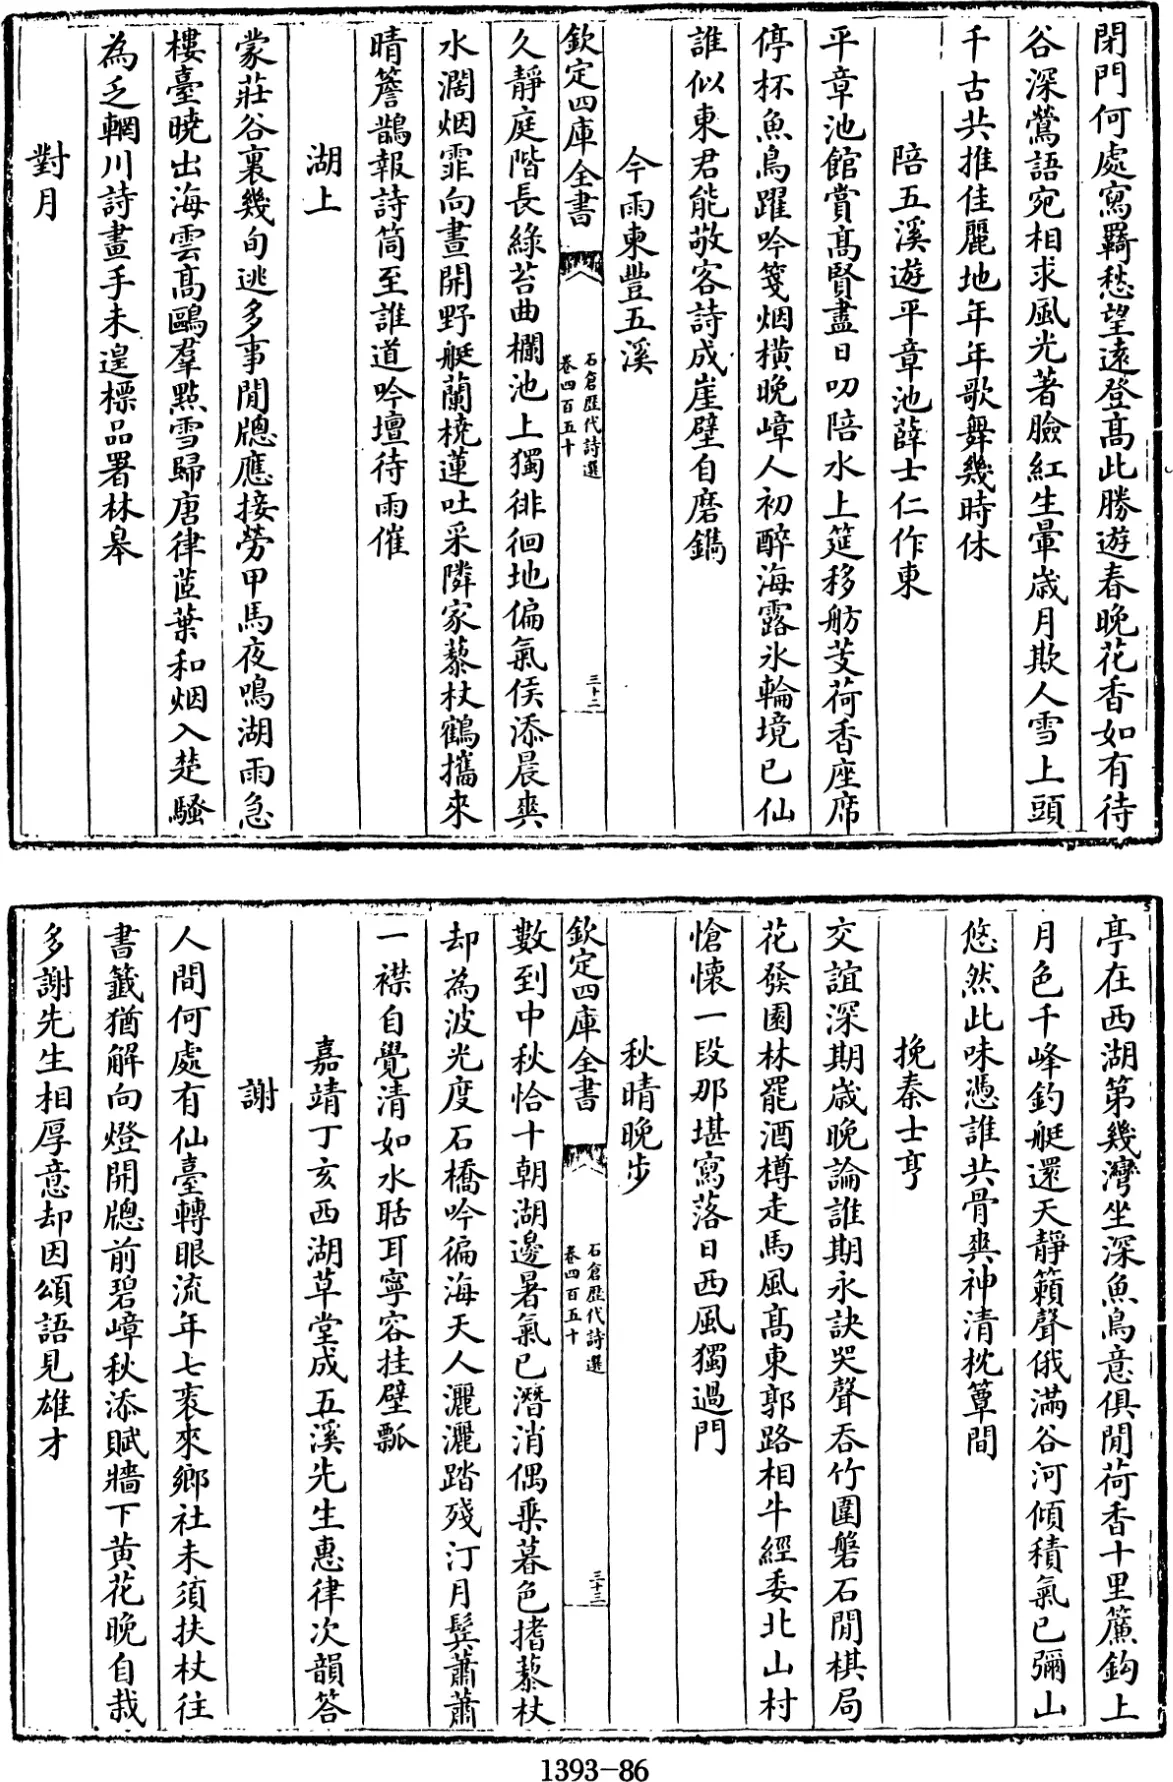 閉門何處寫羇愁望遠登髙此勝遊春晚花香如有待
谷深鶯語宛相求風光著臉紅生暈歳月欺人雪上頭
千古共推佳麗地年年歌舞幾時休
陪五溪遊平章池薛士仁作東
平章池館賞髙賢盡日叨陪水上筵移舫芰荷香座席
停杯魚鳥躍吟箋烟横晚嶂人初醉海露氷輪境已仙
誰似東君能敬客詩成崖壁自磨鐫
今雨東豐五溪
欽定四庫全書
石倉歴代詩選
卷四百五十
三十二
久靜庭階長緑苔曲欄池上獨徘徊地偏氣侯添晨爽
水濶烟霏向晝開野艇蘭橈蓮吐采隣家藜杖鶴攜來
晴簷鵲報詩筒至誰道吟壇待雨催
湖上
蒙莊谷裏幾旬逃多事閒牕應接勞甲馬夜鳴湖雨急
樓臺曉出海雲髙鷗羣㸃雪歸唐律菰葉和烟入楚騷
為乏輞川詩畫手未遑標品署林皐
對月
亭在西湖第幾灣坐深魚鳥意俱閒荷香十里簾鈎上
月色千峰釣艇還天靜籟聲俄滿谷河傾積氣已彌山
悠然此味憑誰共骨爽神清枕簟間
挽秦士亨
交誼深期歳晚論誰期永訣哭聲吞竹圍磐石閒棋局
花發園林罷酒樽走馬風髙東郭路相牛經委北山村
愴懷一段那堪寫落日西風獨過門
秋晴晚步
欽定四庫全書
石倉歴代詩選
卷四百五十
三十三
數到中秋恰十朝湖邊暑氣已潛消偶乗暮色搘藜杖
却為波光度石橋吟徧海天人灑灑踏殘汀月鬂蕭蕭
一襟自覺清如水聒耳寧容挂壁瓢
嘉靖丁亥西湖草堂成五溪先生惠律次韻答
謝
人間何處有仙臺轉眼流年七袠來鄉社未須扶杖往
書籤猶解向燈開牕前碧嶂秋添賦牆下黄花晚自栽
多謝先生相厚意却因頌語見雄才
1393-86